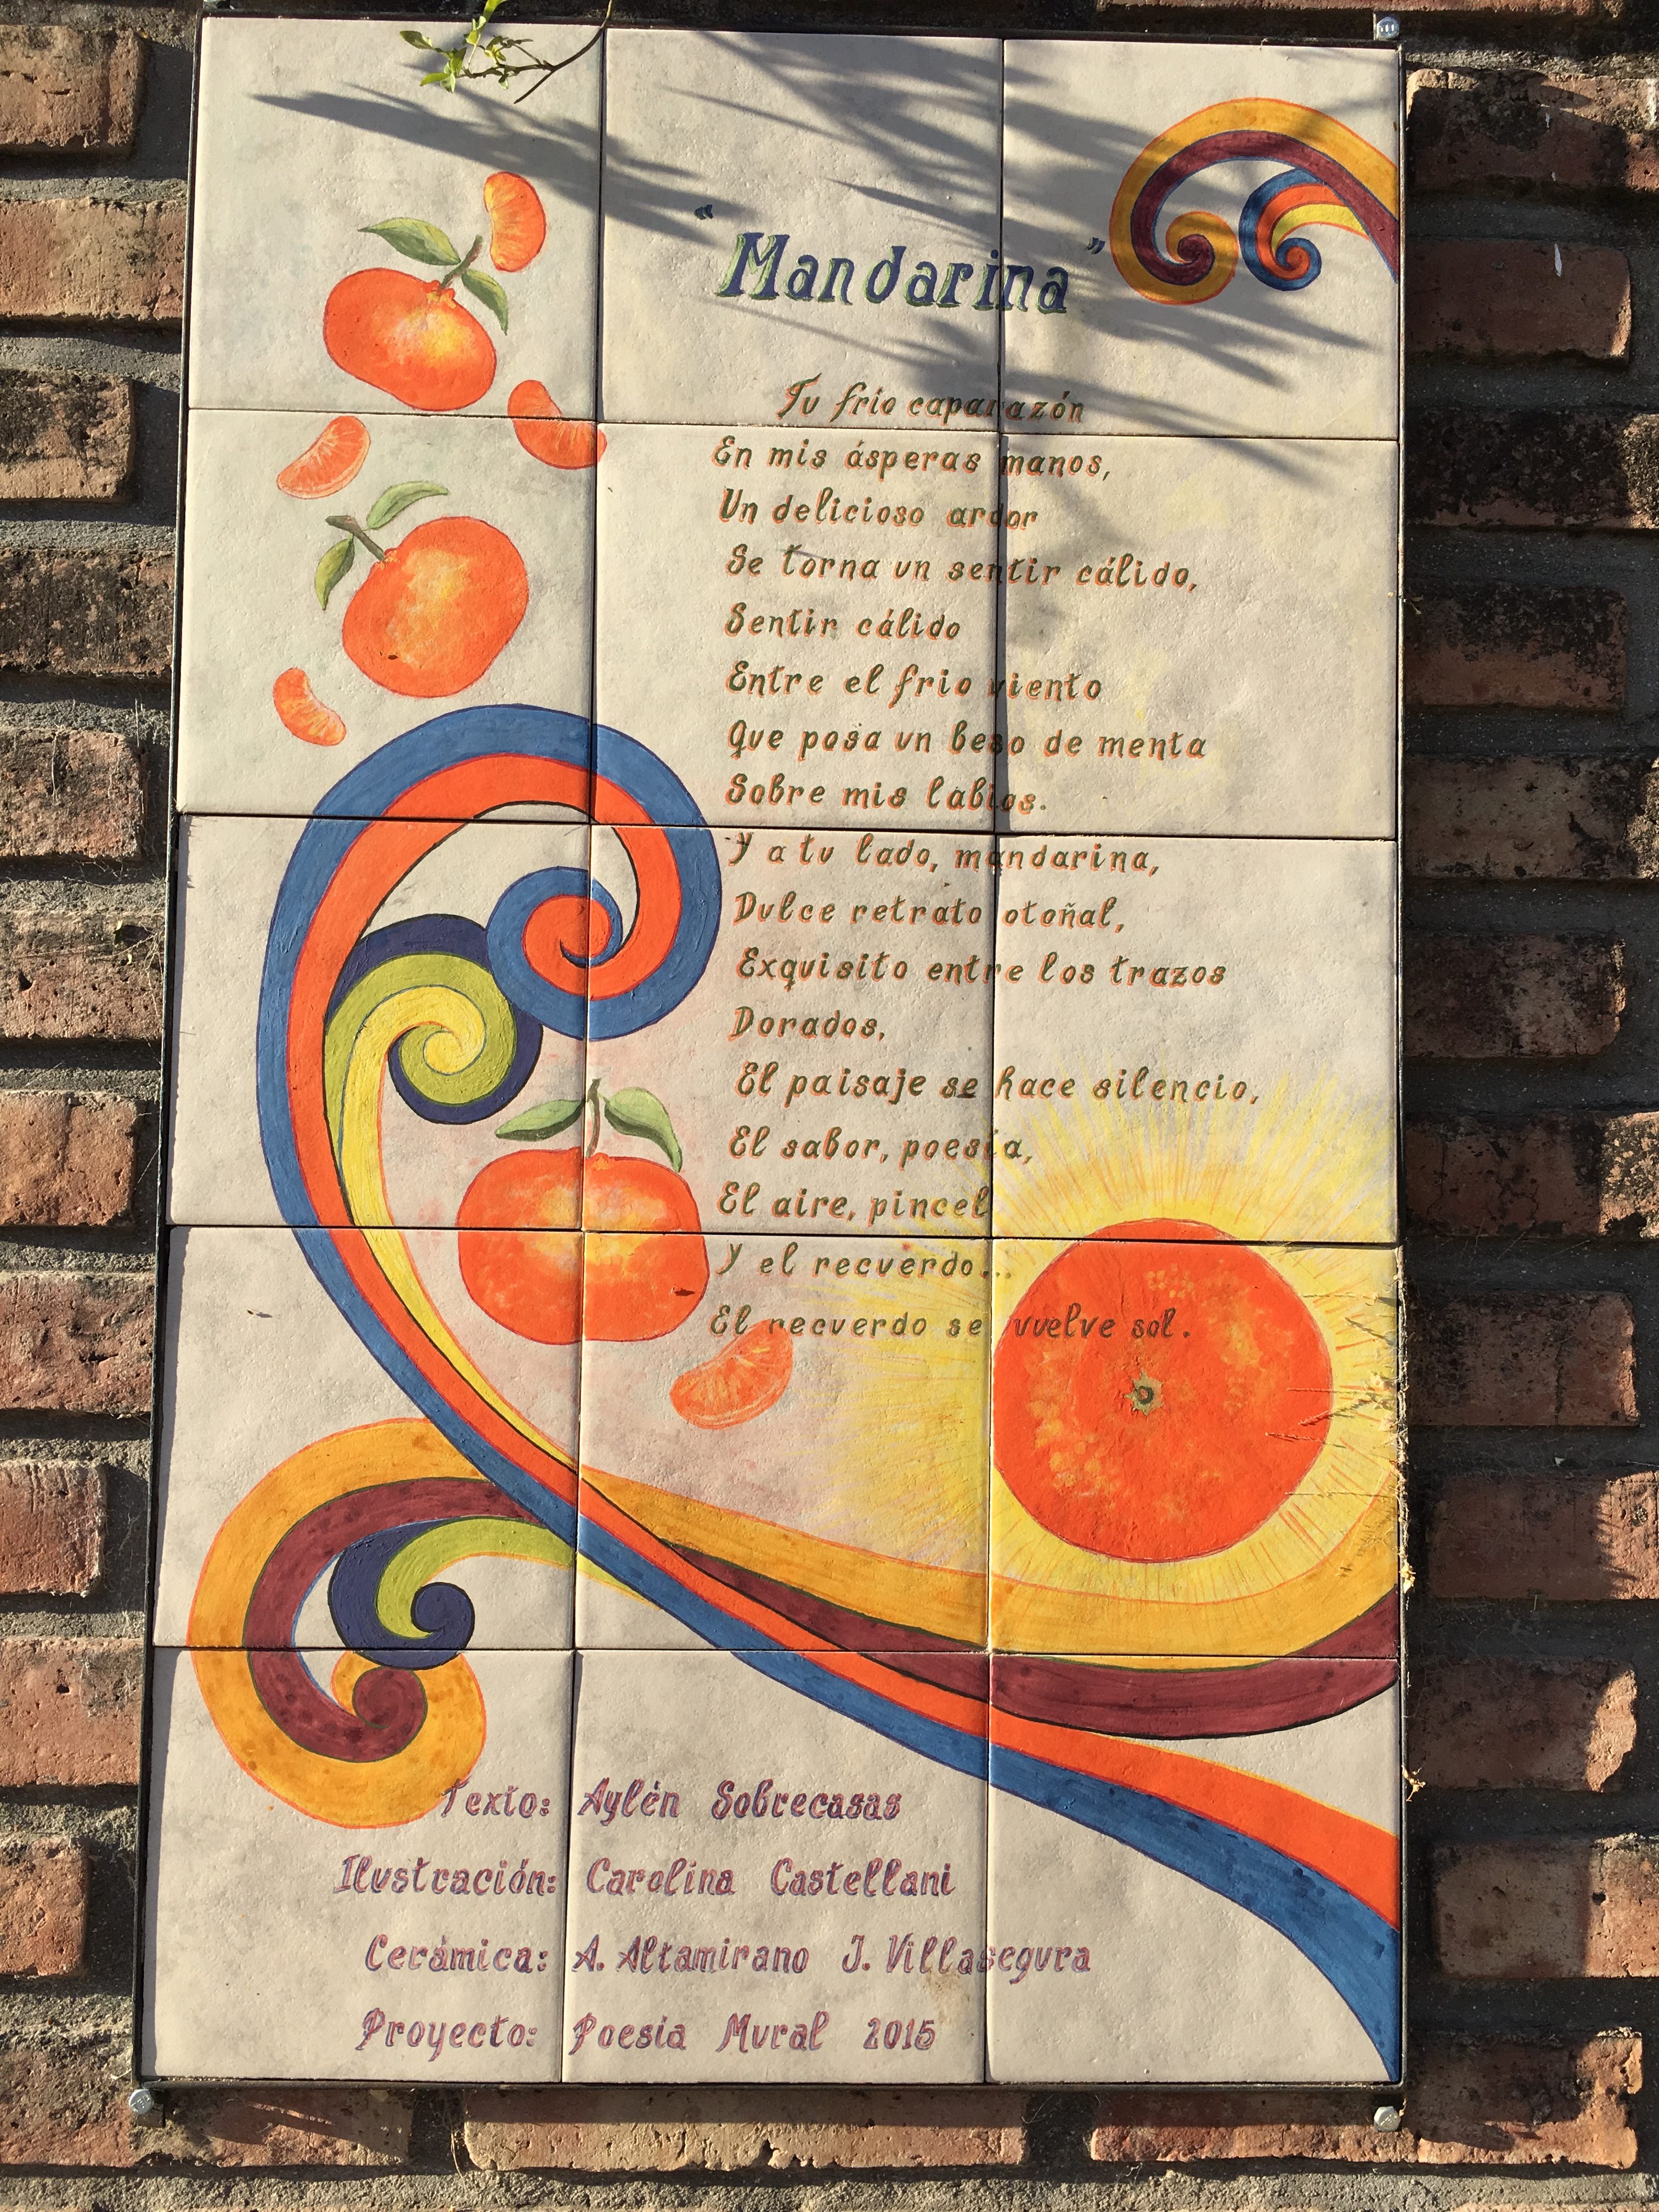 "Mandarina"
Tu frio caparazón
En mis ásperas manos,
Un delicioso ardor
Se torna un sentir cálido,
Sentir cálido
Entre el frio viento
Que posa un beso de menta
Sobre mis labios.
Y a tu lado, mandarina,
Dulce retrato otoñal,
Exquisito entre los trazos
Dorados,
El paisaje se hace silencio,
El sabor, poesia,
El aire, pincel
Y el recuerdo...
El recuerdo se vuelve sol.
Texto: Aylén Sobrecasas
Ilustración: Carolina Castellani
Cerámica: A. Altamirano J. Villasegura
Proyecto: Poesia Mural 2015